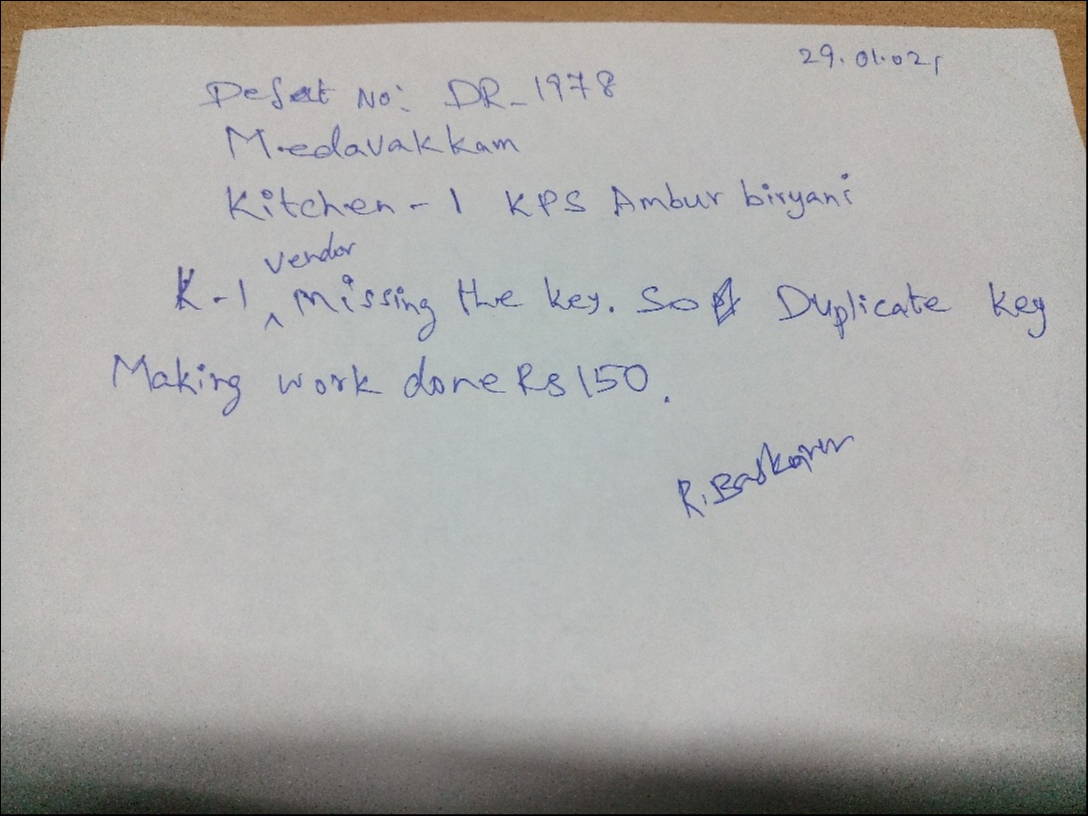 29.01.021
Defect No: DR-1978
Medavakkam
Kitchen-1 KPS Ambur biryani
K-1 vendor missing the key. So Duplicate key
Making work done Rs 150.
R. Baskaran